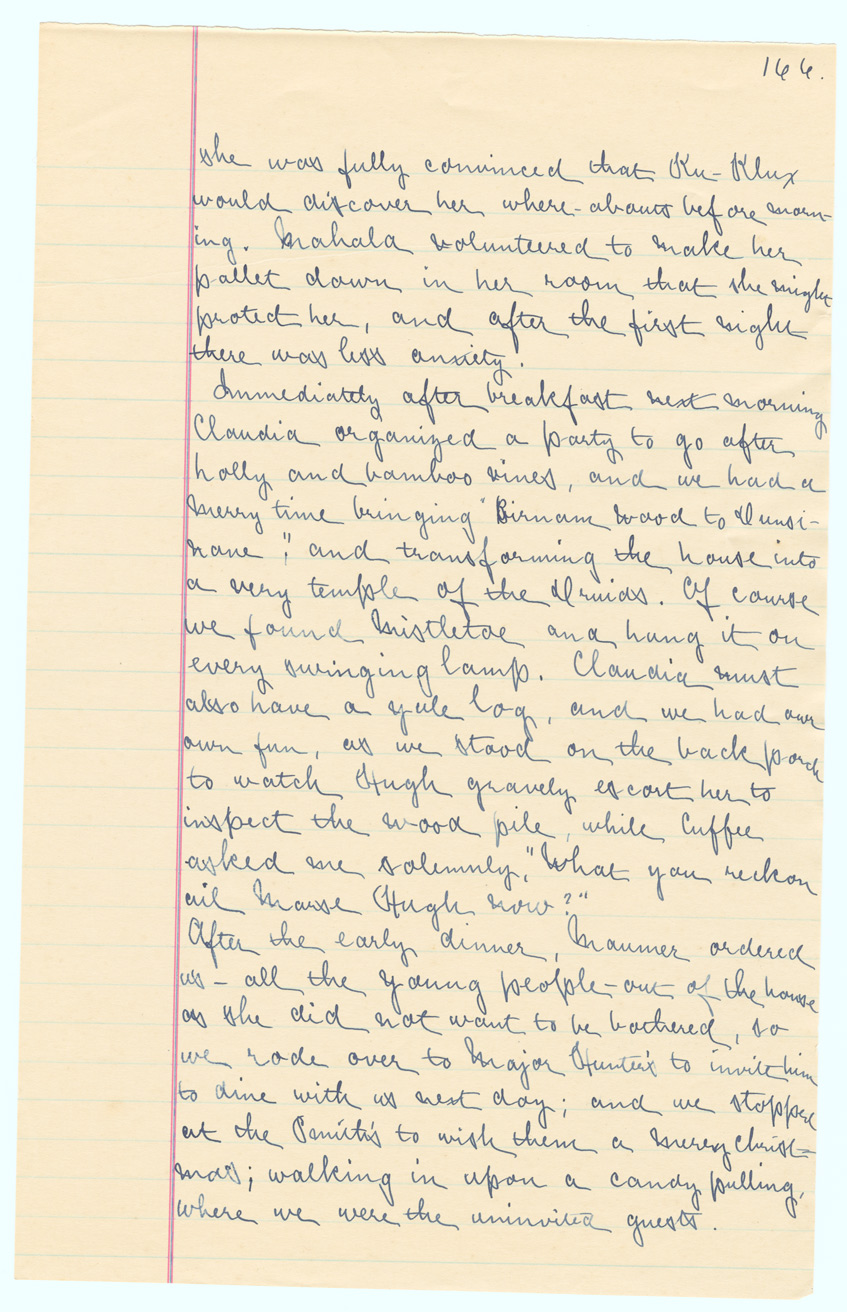 166.
she was fully convinced that Ku-Klux
would discover her where-abouts before morn-
ing. Mahala volunteered to make her
pallet down in her room that she might
protect her, and after the first night
there was less anxiety.
Immediately after breakfast next morning
Claudia organized a party to go after
holly and bamboo vines, and we had a
merry time bringing "Birnam wood to Dunsi-
nane", and transforming the house into
a very temple of the Druids. Of course
we found Mistletoe and hung it on
every swinging lamp. Claudia must
also have a yule log, and we had our
own fun, as we stood on the back porch
to watch Hugh gravely escort her to
inspect the wood pile, while Cuffee
asked me solemnly, "What you reckon
ail Marse Hugh now?"
After the early dinner, Maumer ordered
us - all the young people - out of the house
as she did not want to be bothered, so
we rode over to Major Hunter's to invite him
to dine with us next day; and we stopped
at the Smith's to wish them a merry Christ-
mas; walking in upon a candy pulling,
where we were the uninvited guests.